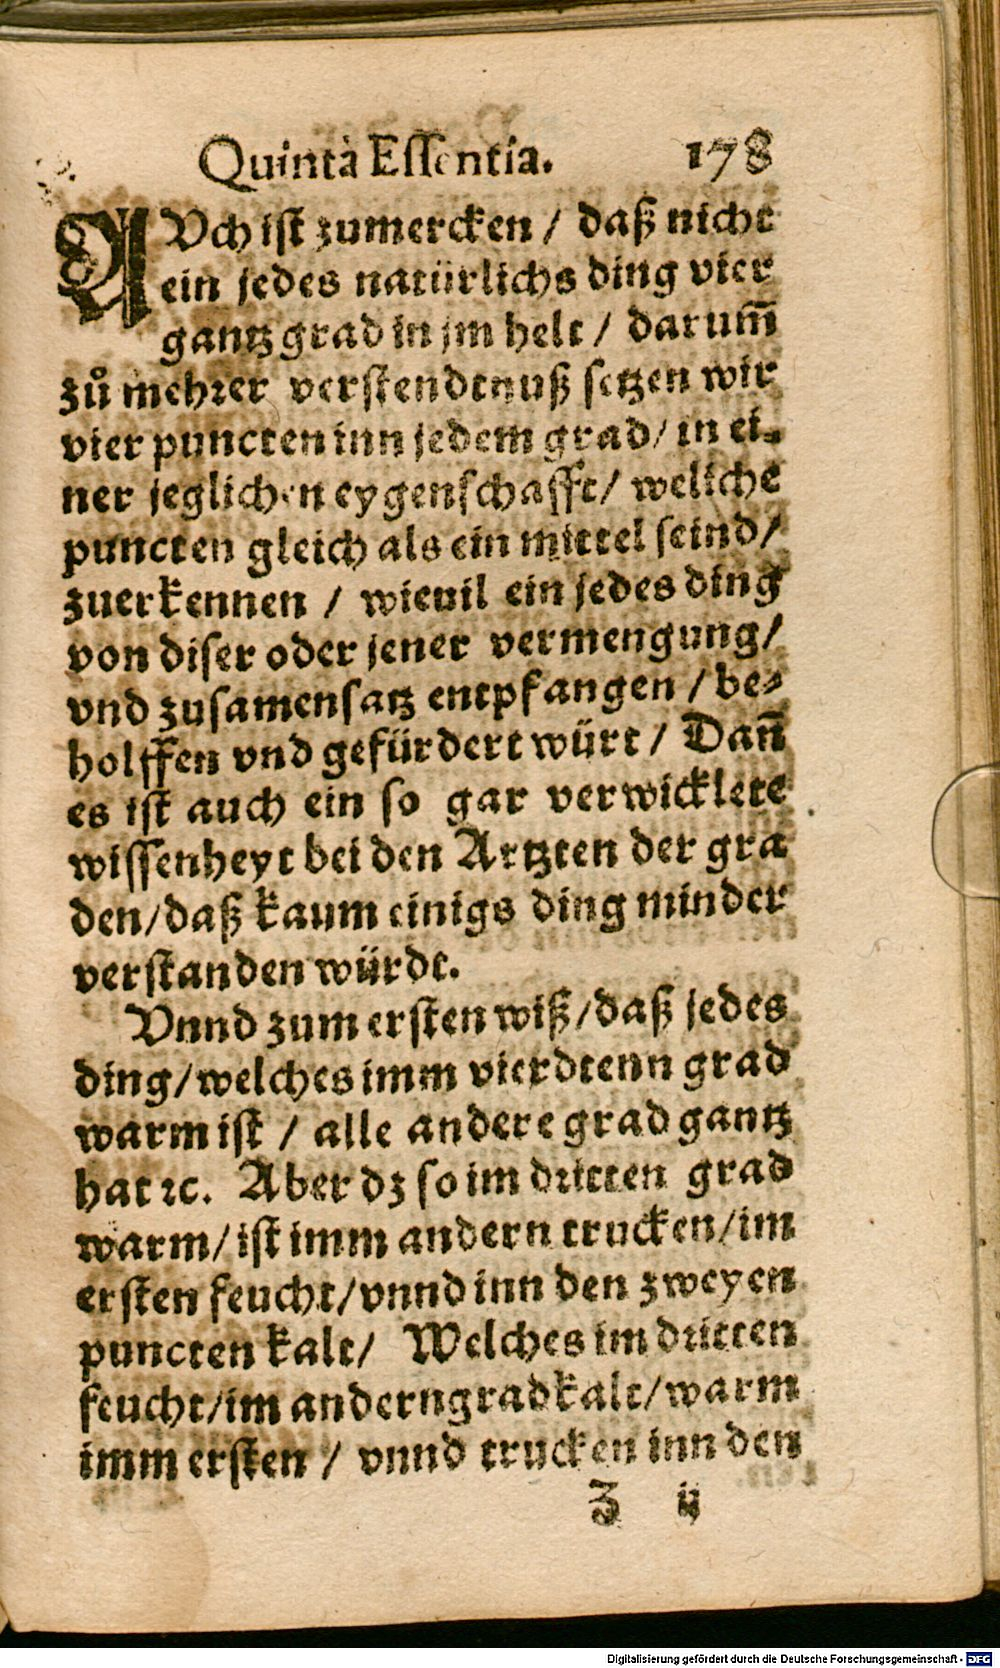 Quinta Essentia. 178
AVch ist zumercken / daß nicht
ein jedes natürlichs ding vier
gantz grad in jm helt / darum̃
zů mehrer verstendtnuß setzen wir
vier puncten inn jedem grad / in ei⸗
ner jeglichen eygenschafft / weliche
puncten gleich als ein mittel seind /
zuerkennen / wieuil ein jedes ding
von diser oder jener vermengung /
vnd zusamensatz entpfangen / be⸗
holffen vnd gefürdert würt / Dañ
es ist auch ein so gar verwicklete
wissenheyt bei den Artzten der gra
den / daß kaum einigs ding minder
verstanden würdt.
Vnnd zum ersten wiß / daß jedes
ding / welches imm vierdtenn grad
warm ist / alle andere grad gantz
hat ꝛc. Aber dz so im dritten grad
warm / ist imm andern trucken / im
ersten feucht / vnnd inn den zweyen
puncten kalt / Welches im dritten
feucht / im andern grad kalt / warm
imm ersten / vnnd trucken inn den
Z ij
Digitalisierung gefördert durch die Deutsche Forschungsgemeinschaft - DFG